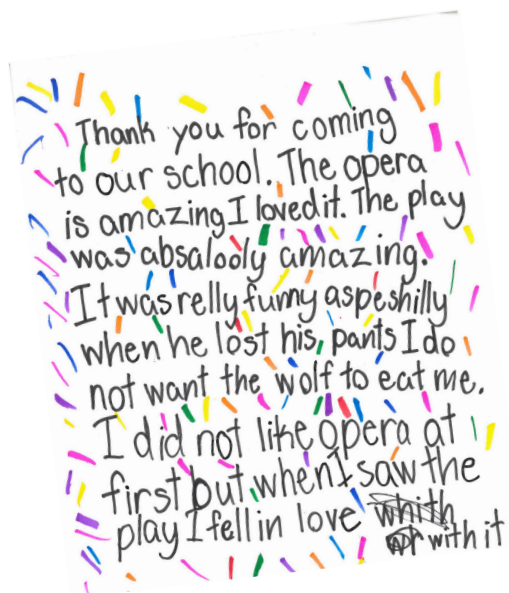 Thank you for coming
to our school. The opera
is amazing I loved it. The play
was absalooly amazing.
It was relly funny aspeshilly
when he lost his, pants I do
not want the wolf to eat me.
I did not like opera at
first but when I saw the
play I fell in love whith
with it